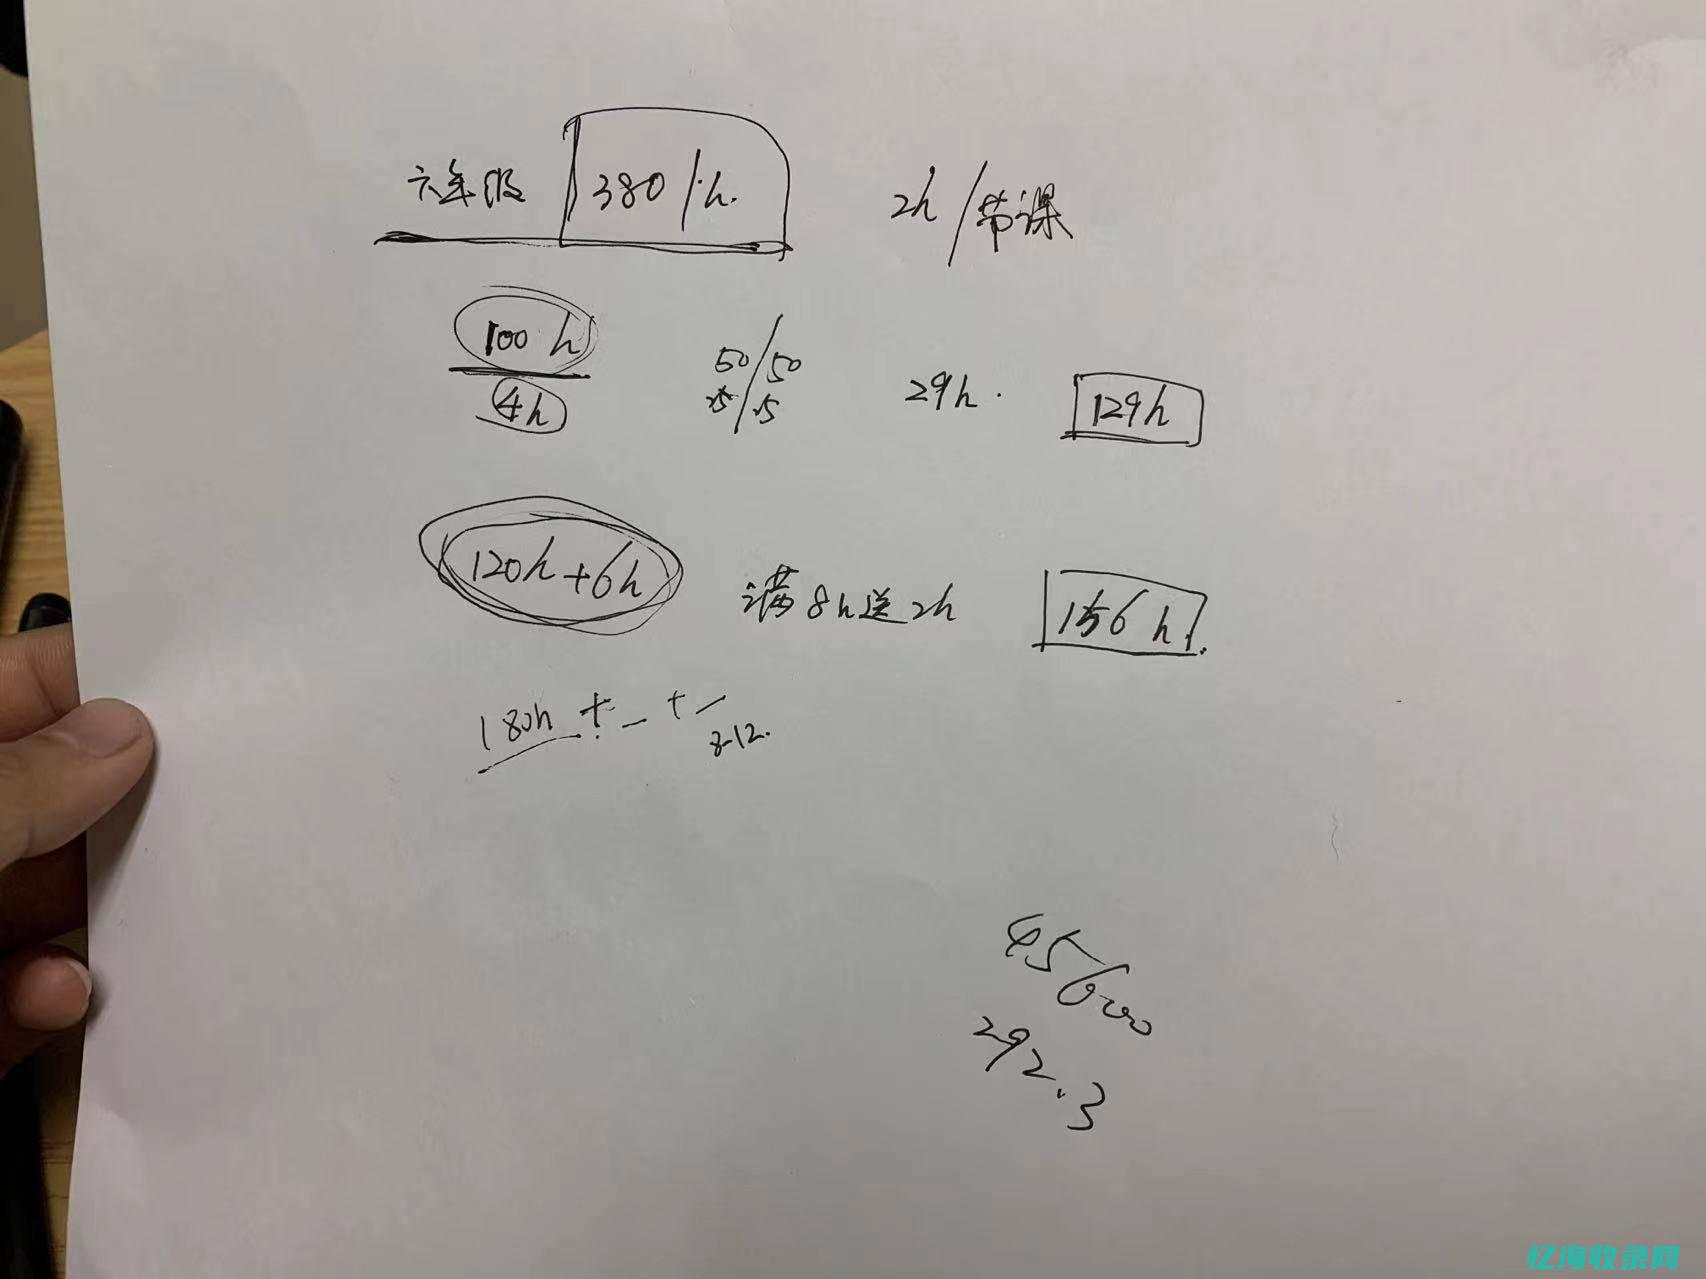 六年级 380/h. 2h/节课
100h 50/50 29h. 129h
4h 25/25
120h+6h 满8h送2h 156h.
180h + _ + _
8-12.
45600
292.3
忆海收录网